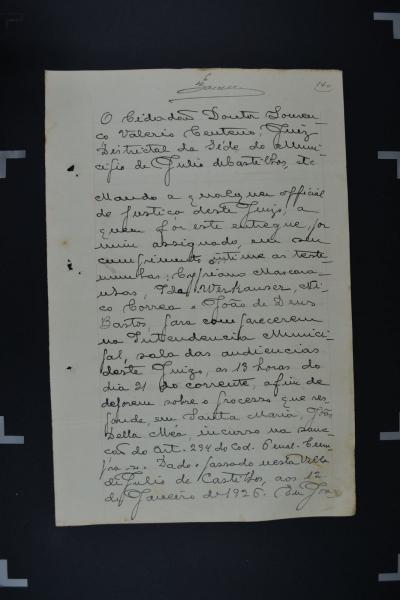 O Cidadão Doutor Louren-
ço Valerio Centeno, Juiz
Districtal da Séde do Muni-
cipio de Julio de Castilhos, etc
Mando a qualquer official
de justiça deste Juizo, a
quem fôr este entregue, por
mim assignado, em seu
cumprimento intime as teste-
munhas: Cypriano Mascare-
nhas, Werkauser,
co Correa e João de Deus
Bastos, para comparecerem
na Intendencia Munici-
pal, sala das audiencias
deste Juizo, as 13 horas do
dia 21 do corrente, afim de
deporem sobre o processo que res-
ponde, em Santa Maria, João
Della Méa, incurso na sanc-
ção do Art. 294 do Cod. Penal. Cum-
pra-se. Dado e passado nesta Villa
de Julio de Castilhos, aos 12
de Janeiro de 1926. Eu,